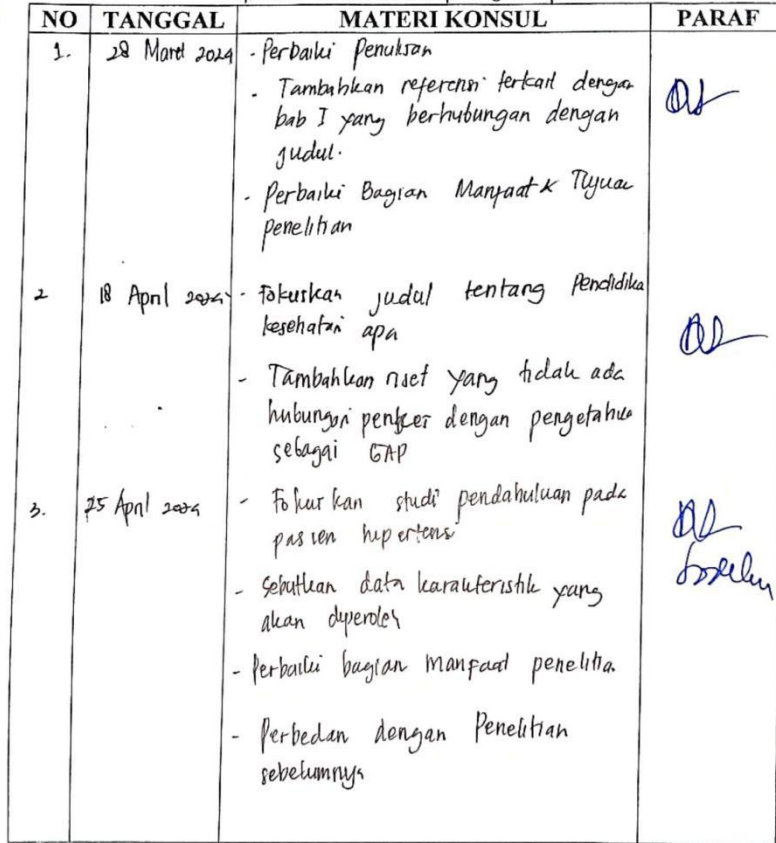 NO TANGGAL MATERI KONSUL PARAF
1. 28 Maret 2024 - Perbaiki Penulisan
- Tambahkan referensi terkait dengan
bab I yang berhubungan dengan
judul.
- Perbaiki Bagian Manfaat & Tujuan
penelitian
2 18 April 2024 - Fokuskan judul tentang Pendidika
kesehatan apa
- Tambahkan riset yang tidak ada
hubungan penkes dengan pengetahua
sebagai GAP
3. 25 April 2024 - Fokuskan studi pendahuluan pada
pasien hipertensi
- Sebutkan data karakteristik yang
akan diperoleh
- Perbaiki bagian manfaat penelitia
- Perbedan dengan Penelitian
sebelumnya